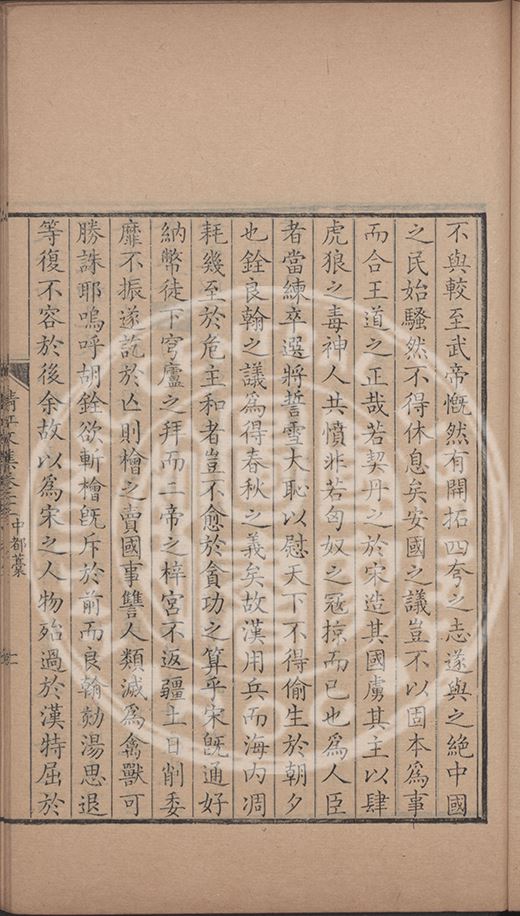 不與較至武帝慨然有開拓四夸之志遂與之絶中國
之民始騷然不得休息矣安國之議豈不以固本爲事
而合王道之正哉若契丹之於宋造其國虜其主以肆
虎狼之毒神人共憤非若匈奴之冦掠而已也爲人臣
者當練卒選將誓雪大恥以慰天下不得偷生於朝夕
也銓良翰之議爲得春秋之義矣故漢用兵而海内凋
耗幾至於危主和者豈不愈於貪功之算乎宋旣通好
納幣徒下穹廬之拜而二帝之梓宮不返疆土日削委
靡不振遂訖於亾則檜之賣國事讐人類滅爲禽獸可
勝誅耶嗚呼胡銓欲斬檜旣斥於前而良翰劾湯思退
等復不容於後余故以爲宋之人物殆過於漢特屈於
清江
集卷
中都藁